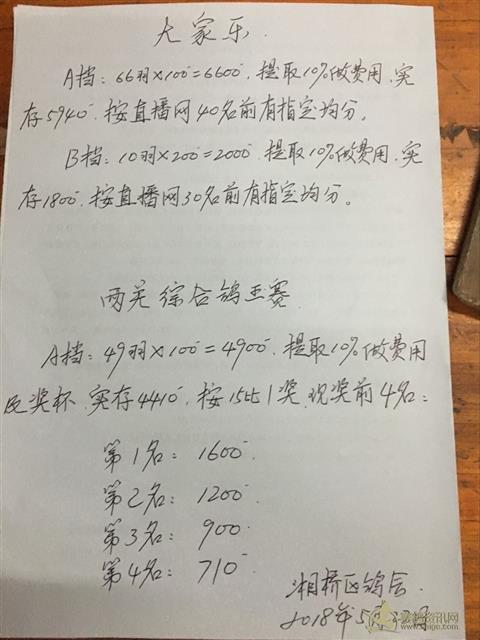 大家乐.
A挡：66羽×100=6600，提取10%做费用，实
存5940，按直播网40名前有指定均分。
B挡：10羽×200=2000，提取10%做费用，实
存1800，按直播网30名前有指定均分。
两关综合鸽王赛
A挡：49羽×100=4900，提取10%做费用
及奖杯，实存4410，按15比1奖，现奖前4名：
第1名：1600
第2名：1200
第3名：900
第4名：710
湘桥区鸽会
2018年5月